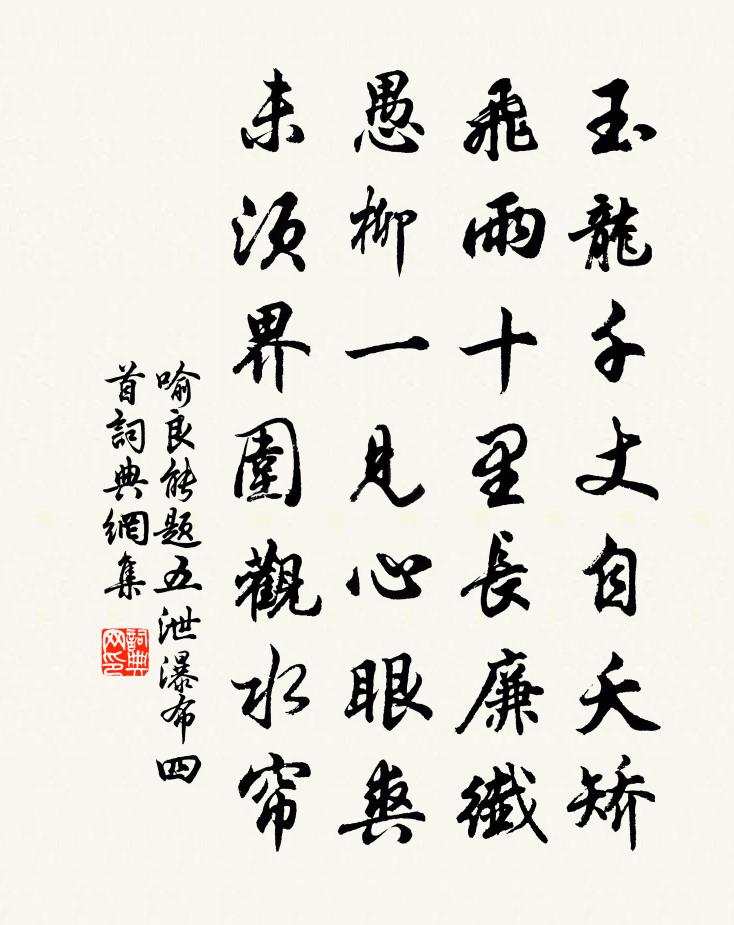 玉龍千丈自夭矯
飛雨十里長廉纖
愚柳一見心眼爽
未須界圍觀水帘
喻良能題五泄瀑布四
首詞典網集
詞典
网印